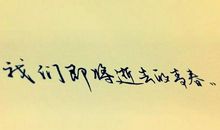 我们即将逝去的青春..